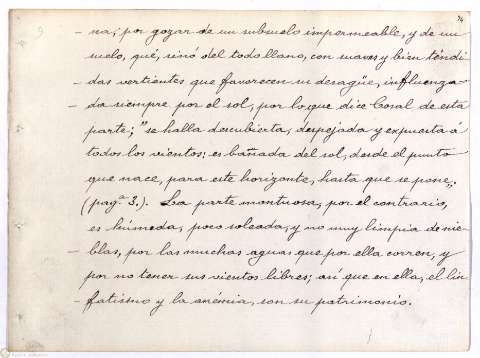 74
9
- na; por gozar de un subsuelo impermeable, y de un
suelo, qué, sinó del todo llano, con suaves y bien téndi
- das vertientes que favorecen su desagüe, influenza-
- da siempre por el sol, por lo que dice Cosal de esta
parte; "se halla descubierta, despejada y expuesta á
todos los vientos: es bañada del sol, desde el punto
que nace, para este horizonte, hasta que se pone;
(pag.ª 3.). La parte montuosa, por el contrario,
es húmeda, poco soleada, y no muy limpia de nie-
- blas, por las muchas aguas que por ella corren, y
por no tener sus vientos libres; así que en ella, el lin
- fatismo y la anémia, son su patrimonio.